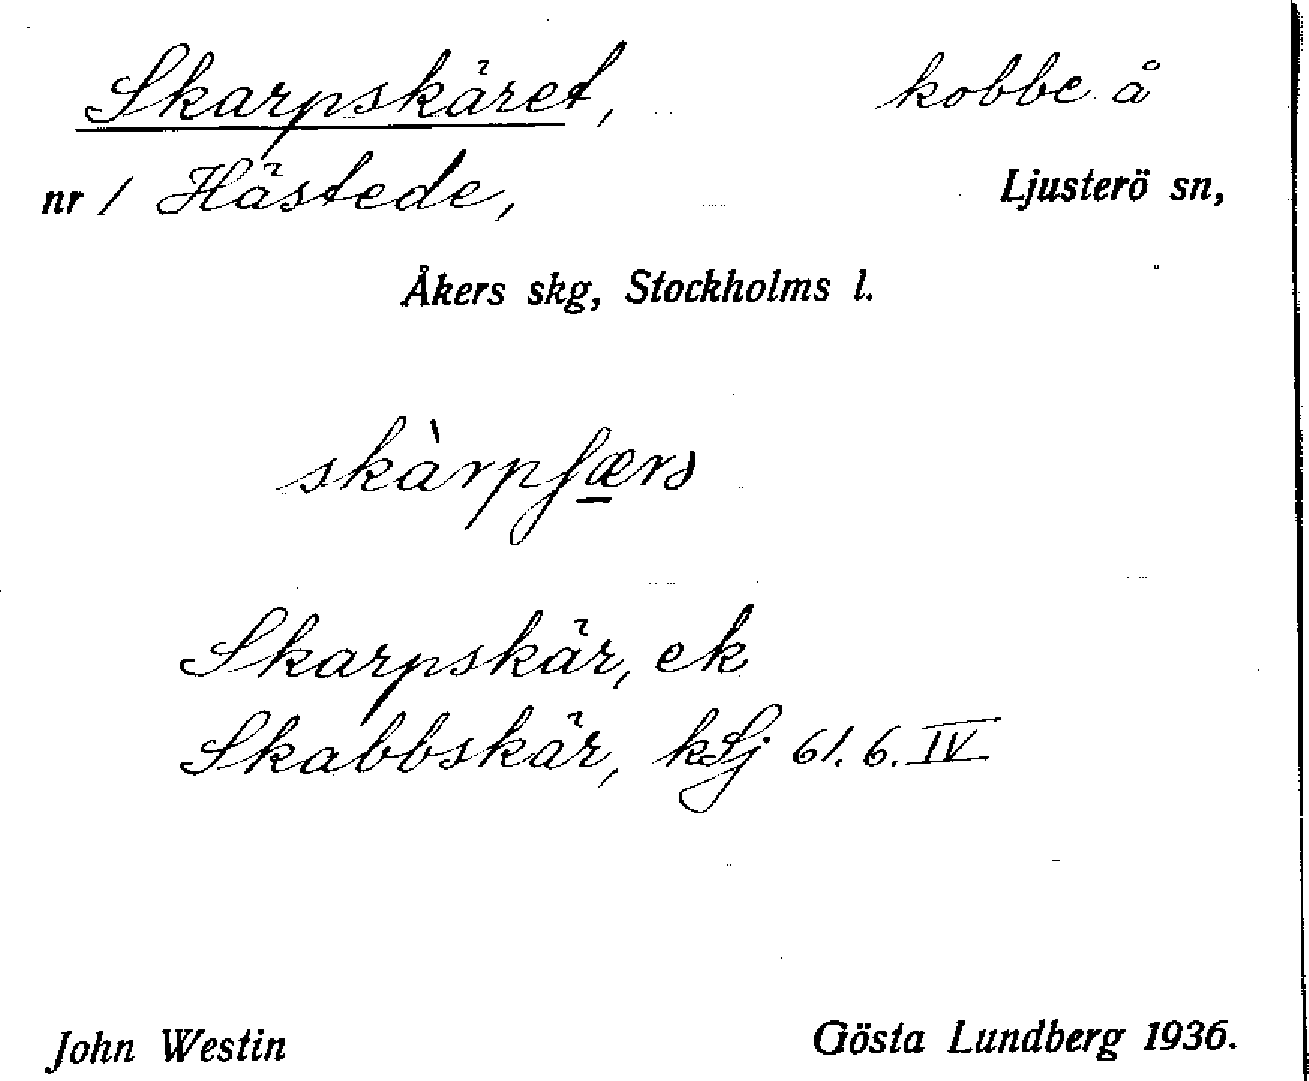 Skarpskäret, kobbe å
nr 1 Hästede, Ljusterö sn,
Åkers skg, Stockholms l.
skàrpʃærs
Skarpskär, ek
Skabbskär, kLj 61.6.IV
John Westin Gösta Lundberg 1936.